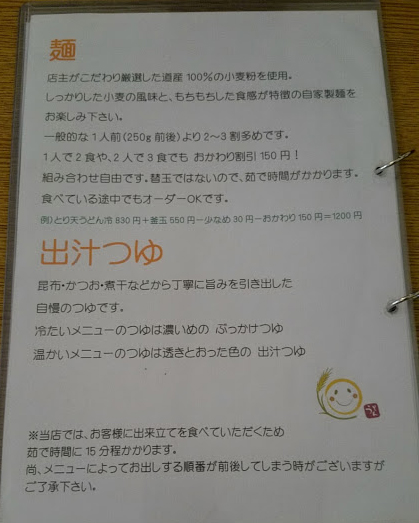 麺
店主がこだわり厳選した道産100%の小麦粉を使用。
しっかりした小麦の風味と、もちもちした食感が特徴の自家製麺を
お楽しみ下さい。
一般的な1人前(250g前後)より2～3割多めです。
1人で2食や、2人で3食でも おかわり割引150円！
組み合わせ自由です。替玉ではないので、茹で時間がかかります。
食べている途中でもオーダーOKです。
例)とり天うどん冷830円＋釜玉550円ー少なめ30円ーおかわり150円＝1200円
出汁つゆ
昆布・かつお・煮干などから丁寧に旨みを引き出した
自慢のつゆです。
冷たいメニューのつゆは濃いめの ぶっかけつゆ
温かいメニューのつゆは透きとおった色の 出汁つゆ
※当店では、お客様に出来立てを食べていただくため
茹で時間に15分程かかります。
尚、メニューによってお出しする順番が前後してしまう時がございますが
ご了承下さい。